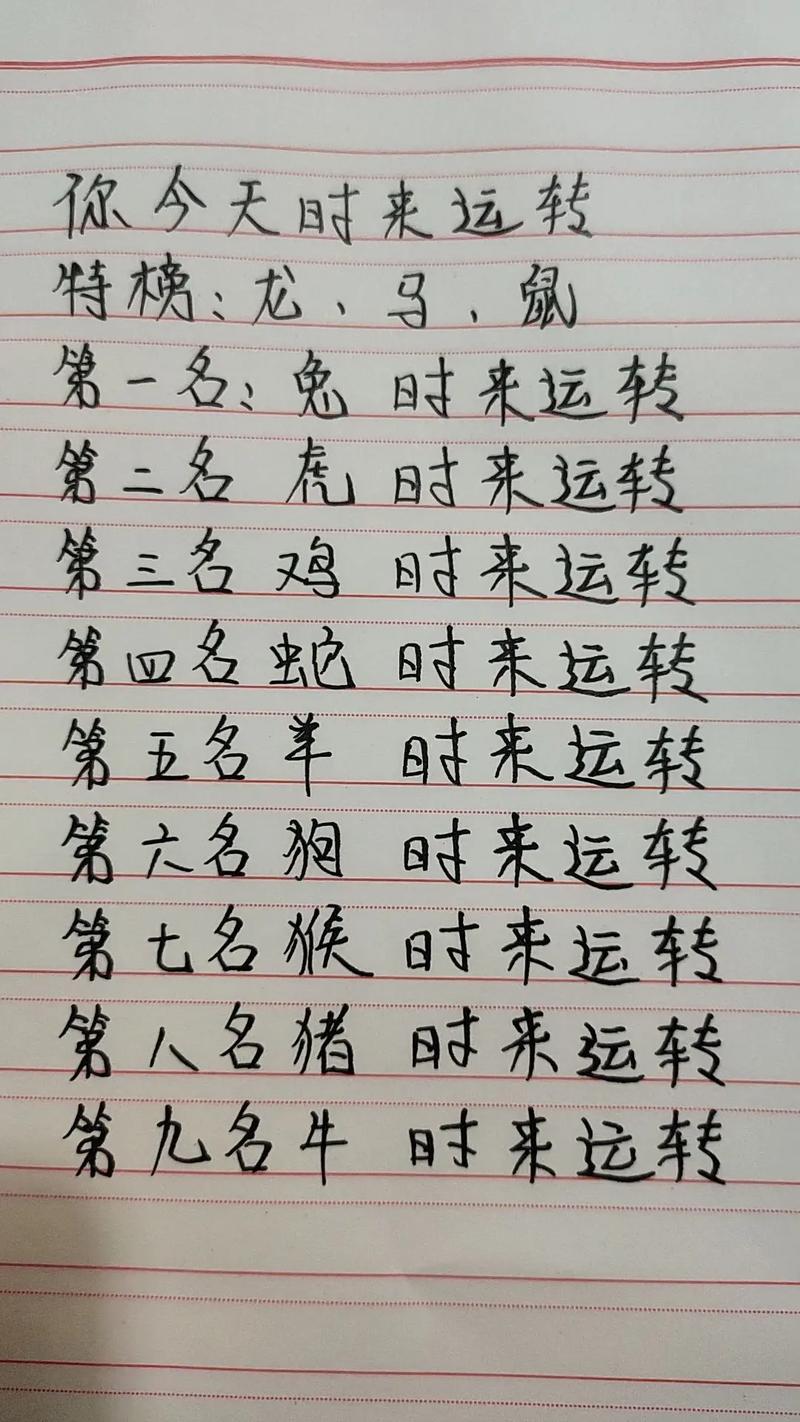 你今天时来运转
特榜：龙、马、鼠
第一名：兔 时来运转
第二名 虎 时来运转
第三名 鸡 时来运转
第四名 蛇 时来运转
第五名 羊 时来运转
第六名 狗 时来运转
第七名 猴 时来运转
第八名 猪 时来运转
第九名 牛 时来运转